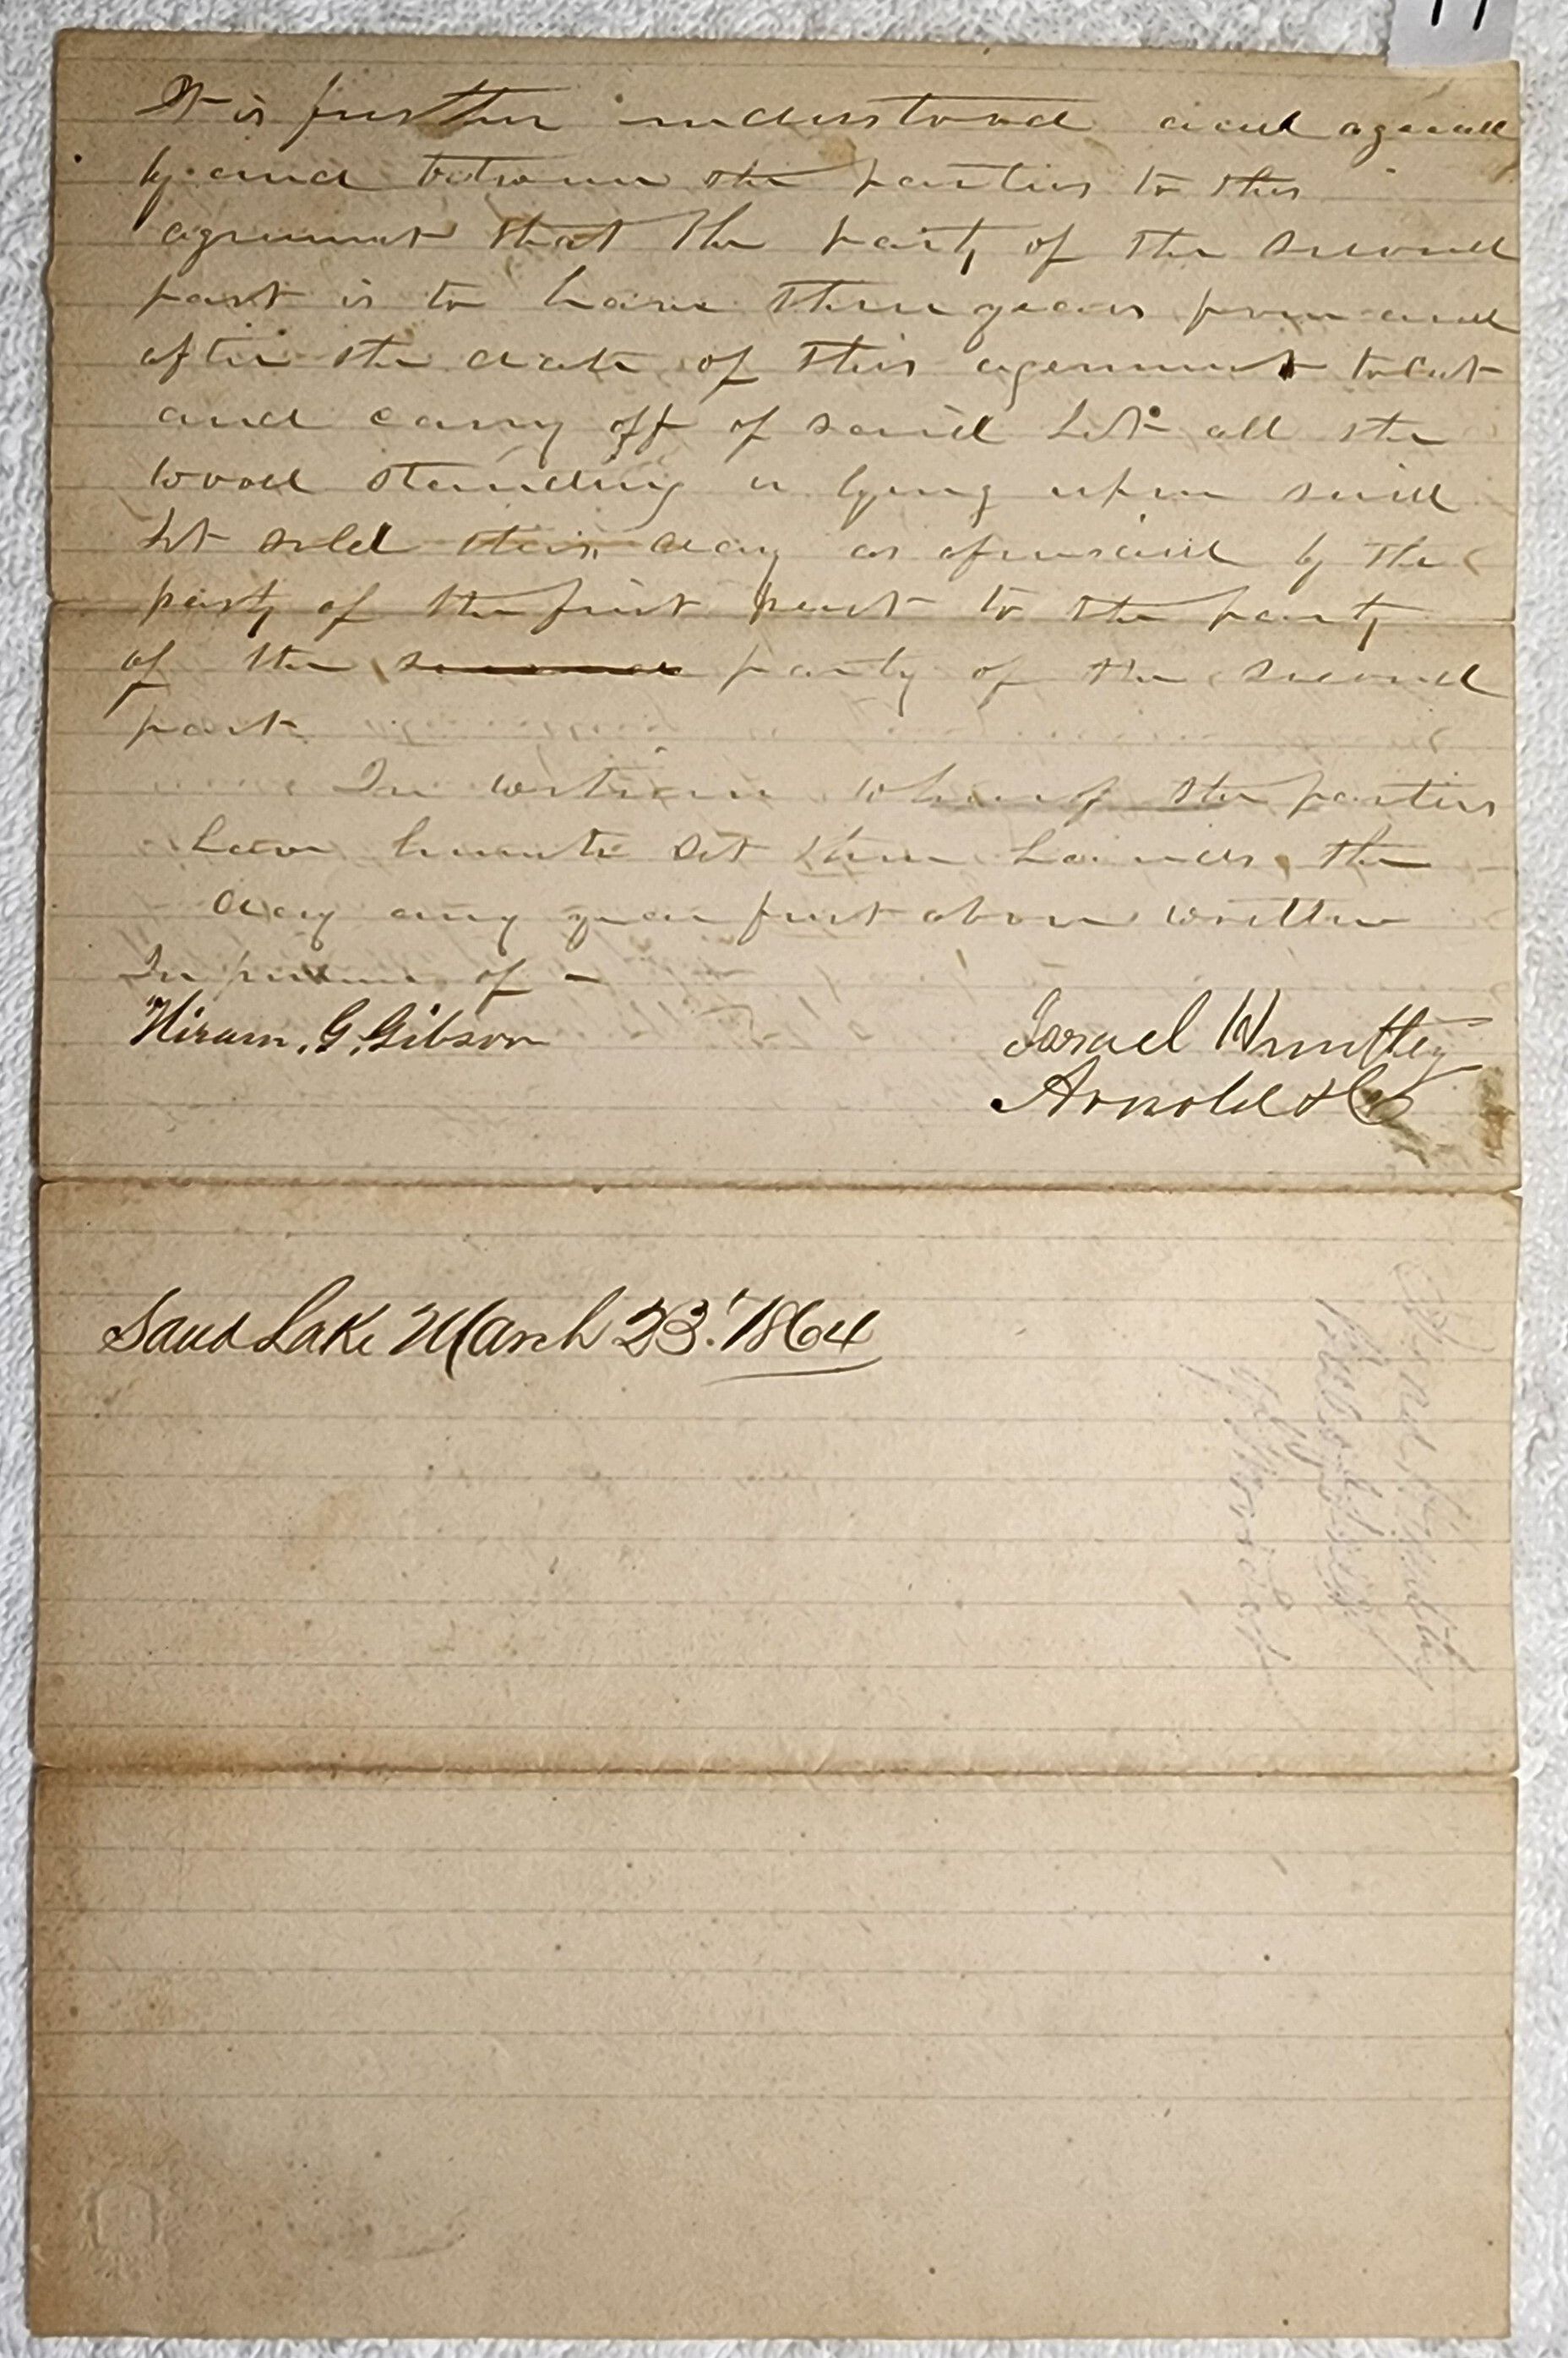 It is further understood and agreed
by and between the parties to this
agreement that the party of the second
part is to have three years from and
after the date of this agreement to cut
and carry off of said Lot all the
wood standing or lying upon said
Lot sold this day as aforesaid by the
party of the first part to the party
of the second party of the second
part
In witness whereof the parties
have hereunto set their hands the
day any year first above written
In presence of -
Hiram. G. Gibson
Israel
Arnold & Co
Sand Lake March 23. 1864